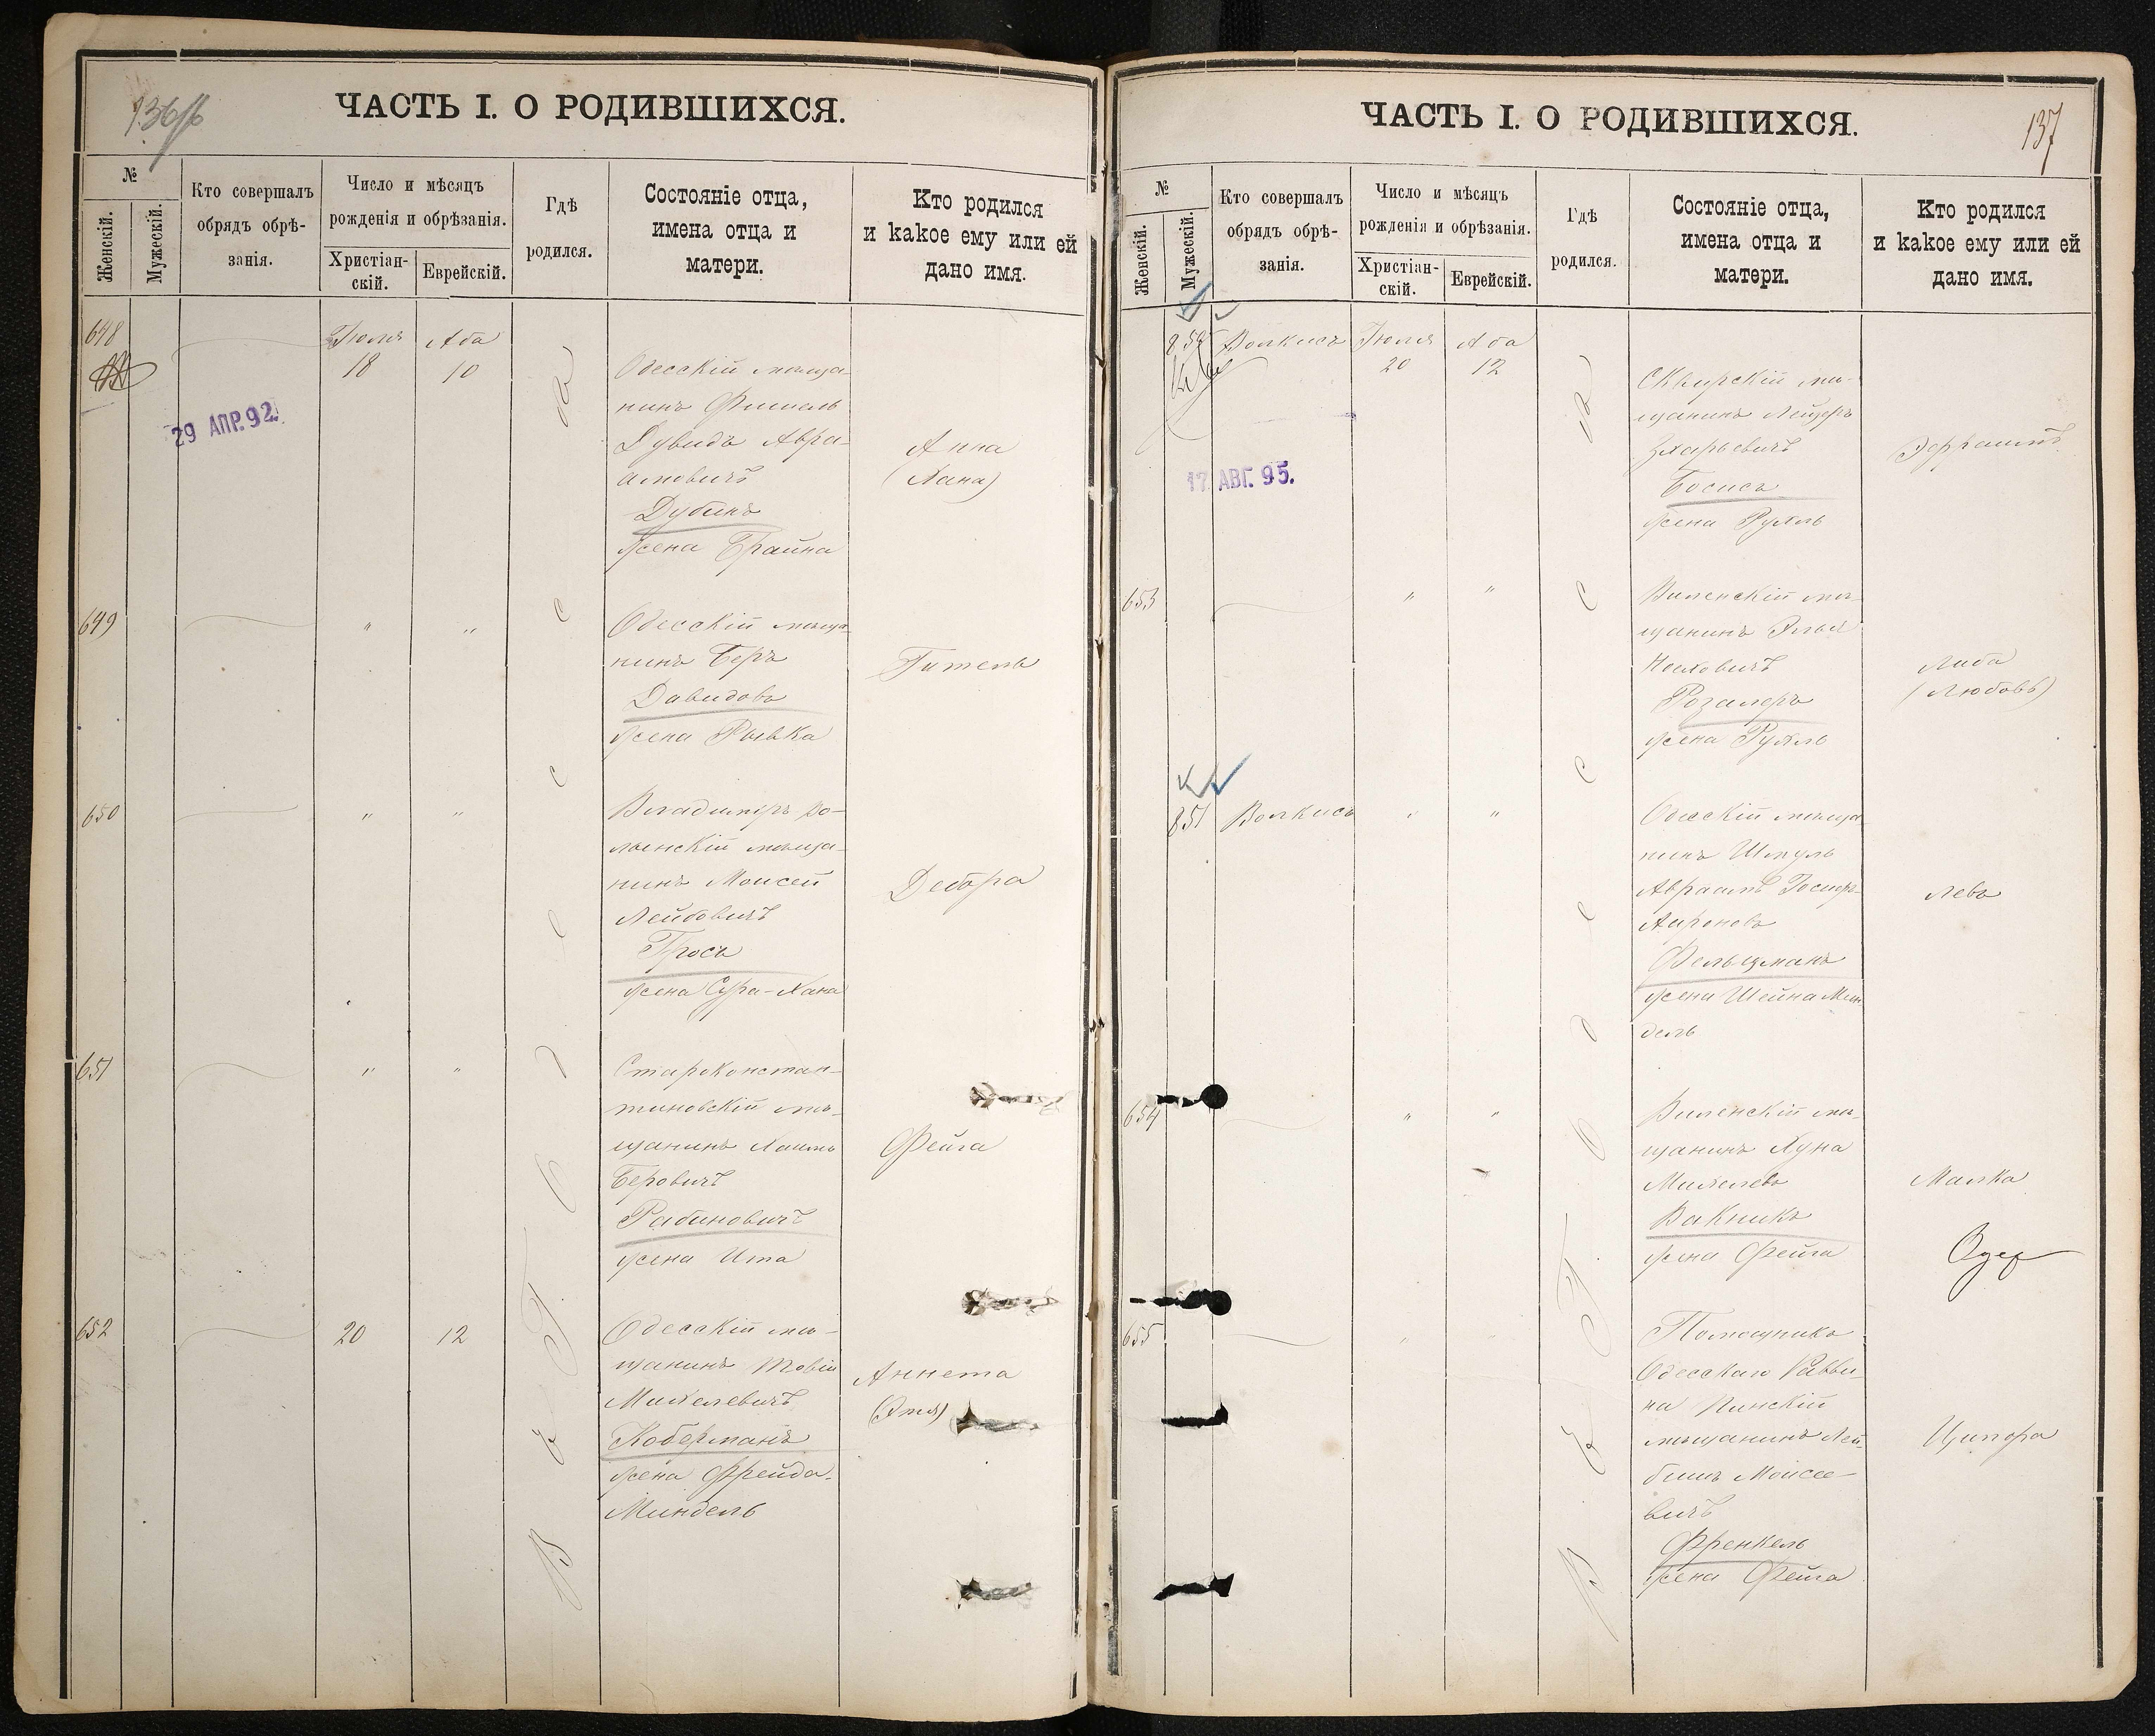 136об
ЧАСТЬ I. О РОДИВШИХСЯ.
№
Женскій.
Мужескій.
Кто совершалъ
обрядъ обрѣ-
занія.
Число и мѣсяцъ
рожденія и обрѣзанія.
Христіан-
скій.
Еврейскій.
Гдѣ
родился.
Состояніе отца,
имена отца и
матери.
Кто родился
и какое ему или ей
дано имя.
648
Іюля
18
Аба
10
29 АПР. 92.
Одесскій мѣща-
нинъ Фишель
Дувидъ Авра-
амовичъ
Дубинъ
жена Брайна
Анна
(Хана)
649
"
"
Одесскій мѣща-
нинъ Беръ
Давидовъ
жена Рывка
Гитель
650
"
"
Владиміръ Во-
лынскій мѣща-
нинъ Моисей
Лейбовичъ
Гросъ
жена Сура-Хана
Дебора
651
"
"
Староконстан-
тиновскій мѣ-
щанинъ Хаимъ
Беровичъ
Рабиновичъ
жена Ита
Фейга
652
20
12
Одесскій мѣ-
щанинъ Товій
Михелевичъ
Коберманъ
жена Фрейда-
Миндель
Аннета
въ г. Одессѣ
137
ЧАСТЬ I. О РОДИВШИХСЯ.
№
Женскій.
Мужескій.
Кто совершалъ
обрядъ обрѣ-
занія.
Число и мѣсяцъ
рожденія и обрѣзанія.
Христіан-
скій.
Еврейскій.
Гдѣ
родился.
Состояніе отца,
имена отца и
матери.
Кто родился
и какое ему или ей
дано имя.
Волкисъ
Іюля
20
Аба
12
17 АВГ. 95.
Сквирскій мѣ-
щанинъ Лейзеръ
Зхарьевичъ
Босисъ
жена Рухль
Эфраимъ
653
"
"
Виленскій мѣ-
щанинъ Эльа
Носховичъ
жена Рухль
Либа
(Любовь)
851
Волкисъ
"
"
Одесскій мѣща
нинъ Шмуль
Авраамъ
Аароновъ
Фельцманъ
жена Шейна Мин
дель
Левъ
654
"
"
Виленскій мѣ-
щанинъ Хуна
Михелевъ
Вакникъ
жена Фейга
Малка
655
"
"
Помощникъ
Одесскаго Равви-
на Пинскій
мѣщанинъ Лей-
бишъ Моисее-
вичъ
Френкель
жена Фейга
Ципора
въ г. Одессѣ